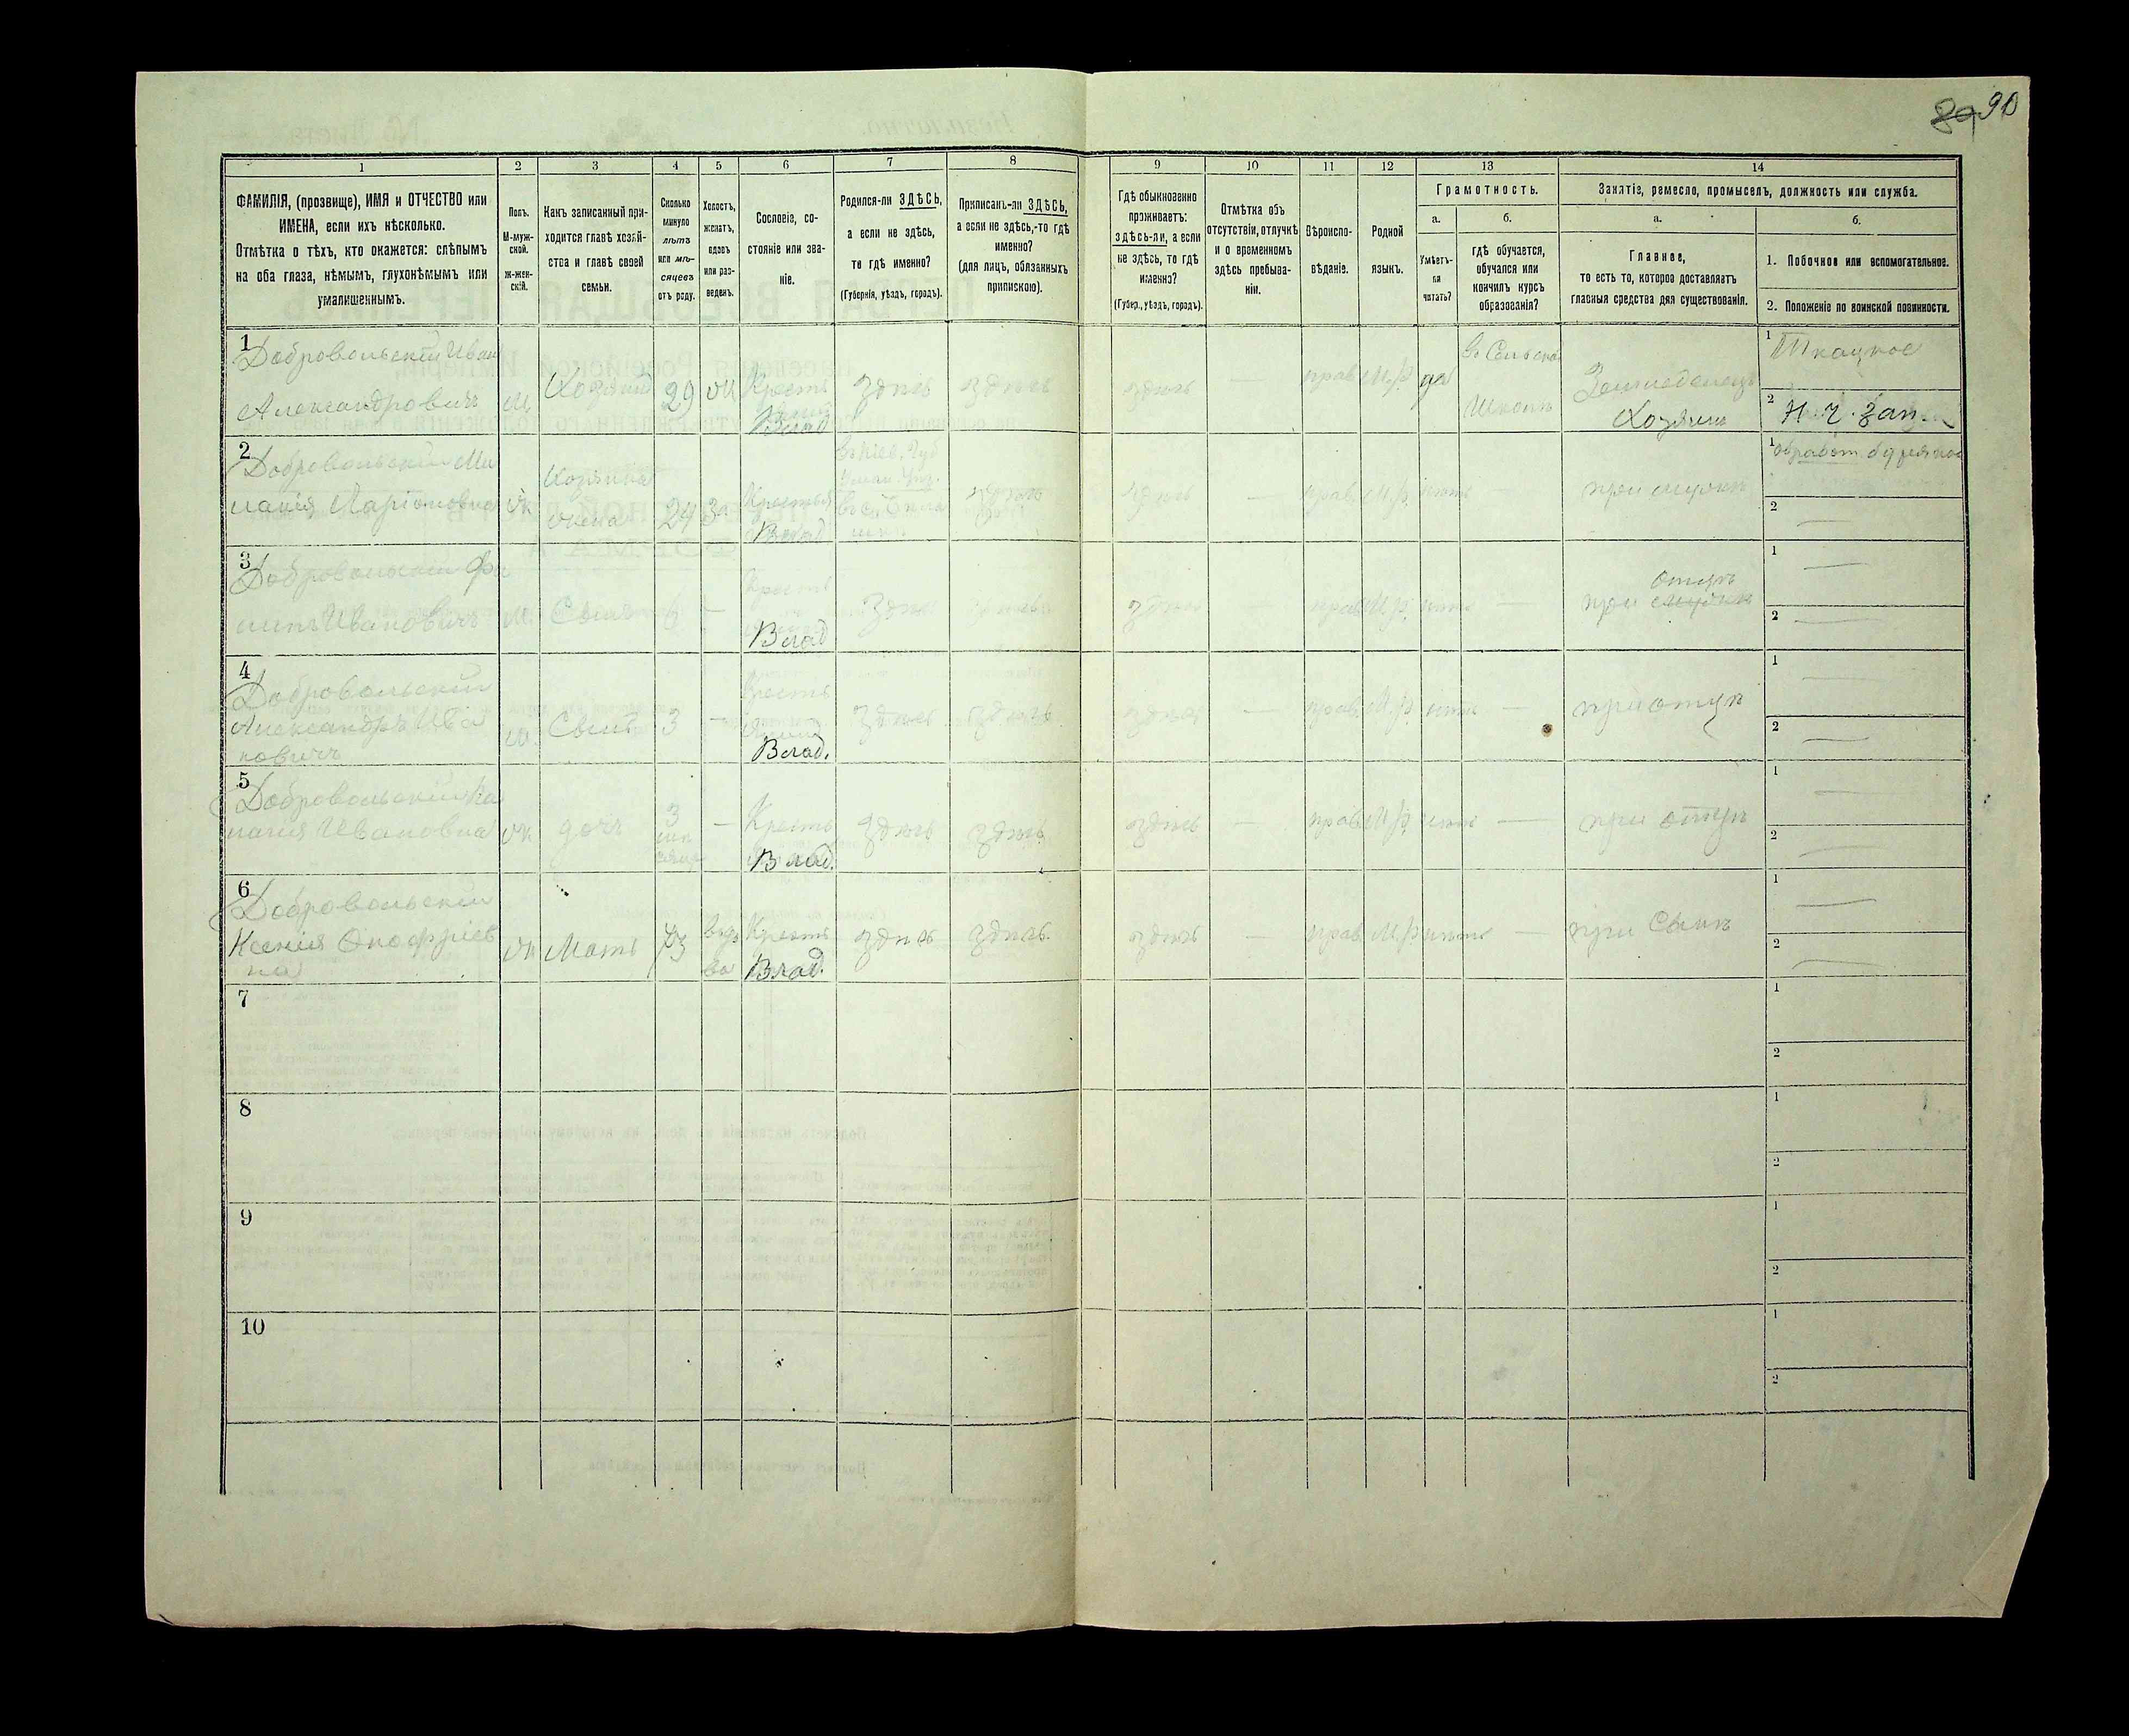 89 90
1 2 3 4 5 6 7 8 9 10 11 12 13 14
ФАМИЛІЯ, (прозвище), ИМЯ и ОТЧЕСТВО или
ИМЕНА, если ихъ нѣсколько.
Отмѣтка о тѣхъ, кто окажется: слѣпымъ
на оба глаза, нѣмымъ, глухонѣмымъ или
умалишеннымъ.
Полъ.
М-муж-
ской.
ж-жен-
скій.
Какъ записанный при-
ходится главѣ хозяй-
ства и главѣ своей
семьи.
Сколько
минуло
лѣтъ
или мѣ-
сяцевъ
отъ роду.
Холостъ,
женатъ,
вдовъ
или раз-
веденъ.
Сословіе, со-
стояніе или зва-
ніе.
Родился-ли ЗДѢСЬ,
а если не здѣсь,
то гдѣ именно?
(Губернія, уѣздъ, городъ).
Приписанъ-ли ЗДѢСЬ,
а если не здѣсь,-то гдѣ
именно?
(для лицъ, обязанныхъ
припискою).
Гдѣ обыкновенно
проживаетъ:
здѣсь-ли, а если
не здѣсь, то гдѣ
именно?
(Губер., уѣздъ, городъ).
Отмѣтка объ
отсутствіи, отлучкѣ
и о временномъ
здѣсь пребыва-
ніи.
Вѣроиспо-
вѣданіе.
Родной
языкъ.
Грамотность.
а.
Умѣетъ-
ли
читать?
б.
гдѣ обучается,
обучался или
кончилъ курсъ
образованія?
Занятіе, ремесло, промыселъ, должность или служба.
а.
Главное,
то есть то, которое доставляетъ
главныя средства для существованія.
б.
1. Побочное или вспомогательное.
2. Положеніе по воинской повинности.
1
Добровольскій Иван
Александровичъ
м. Хозяин 29 ж Кресть
Влад
здѣсь здѣсь здѣсь — прав. М.р. да
въ Сельской
Школѣ
Земледѣлецъ
Хозяинъ
1 Ткацкое
2 Н. Ч. Зап.
2
Добровольскій Ма
ланія Ларіоновна
ж
Хозяина
жена
24 За
Влад
въ Кіев. Губ
здѣсь — прав. М.р. нѣтъ — при мужѣ
1
2 —
3
Добровольскій Фи
липъ Ивановичъ
м. Сынъ 6 — Кресть
Влад
здѣсь здѣсь здѣсь — прав. М.р. нѣтъ —
отцѣ
при мужѣ
1 —
2 —
4
Добровольскій
Александръ Ива
новичъ
м. Сынъ 3 — Кресть
Влад.
здѣсь здѣсь здѣсь — прав. М.р. нѣтъ — при отцѣ
1 —
2 —
5
Ивановна
ж дочь 3
мѣ
— Кресть
Влад.
здѣсь здѣсь здѣсь — прав. М.р. нѣтъ — при отцѣ
1 —
2 —
6
Добровольскій
Ксенія Онофріев
на
ж Мать 73
вдо
ва
Кресть
Влад.
здѣсь здѣсь здѣсь — прав. М.р. нѣтъ — при Сынѣ
1 —
2 —
7
1
2
8
1
2
9
1
2
10
1
2